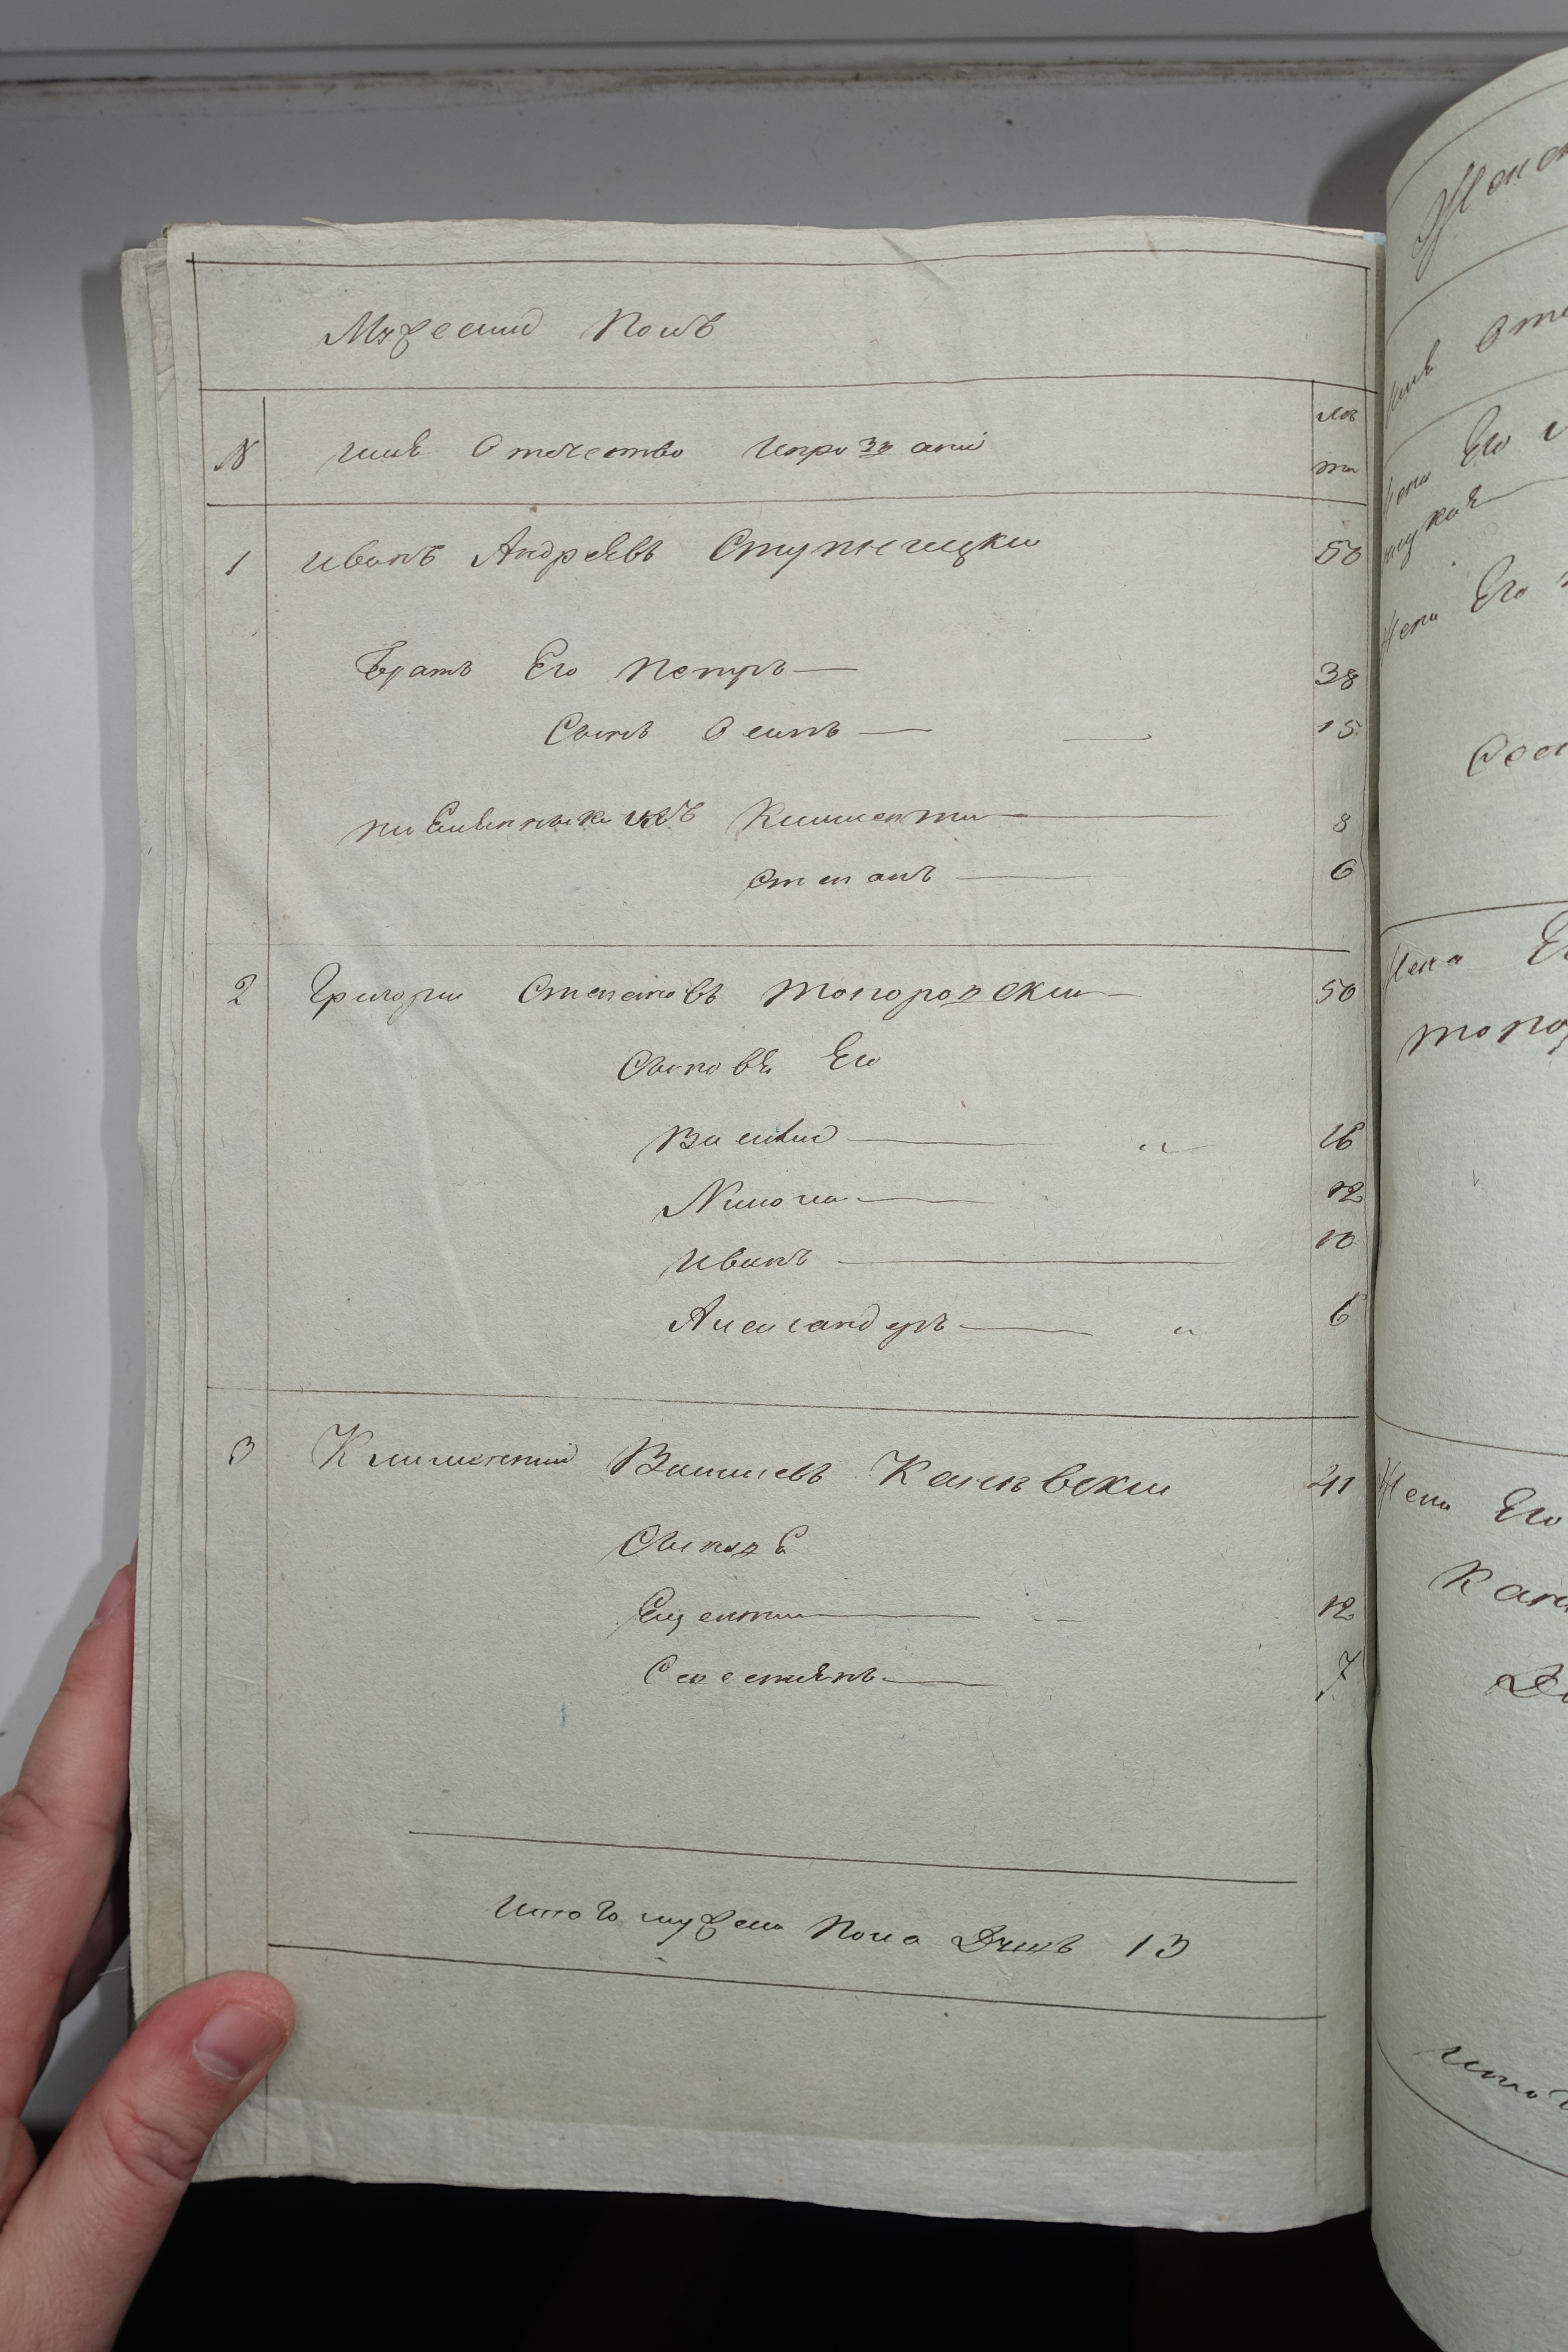 Мужеский Полъ
№ имя Отечество Ипрозвани лѣ та
1 Иванъ Андреевъ Ступницки 50
Братъ Его Петръ — 38
Сынъ Осипъ — 15
племянники ихъ Климентии — 8
Степанъ — 6
2 Григории Степановъ Топоровски — 50
Сыновя Его
Василий — 16
Никола — 12
Иванъ — 10
Александръ — 6
3 Климентий Васильевъ Каневски 41
Сыновя
— 12
Севестиянъ — 7
Итого мужеска Пола Душъ 13
Его
Отче
Его
Жена Его
Жена
Жена Его